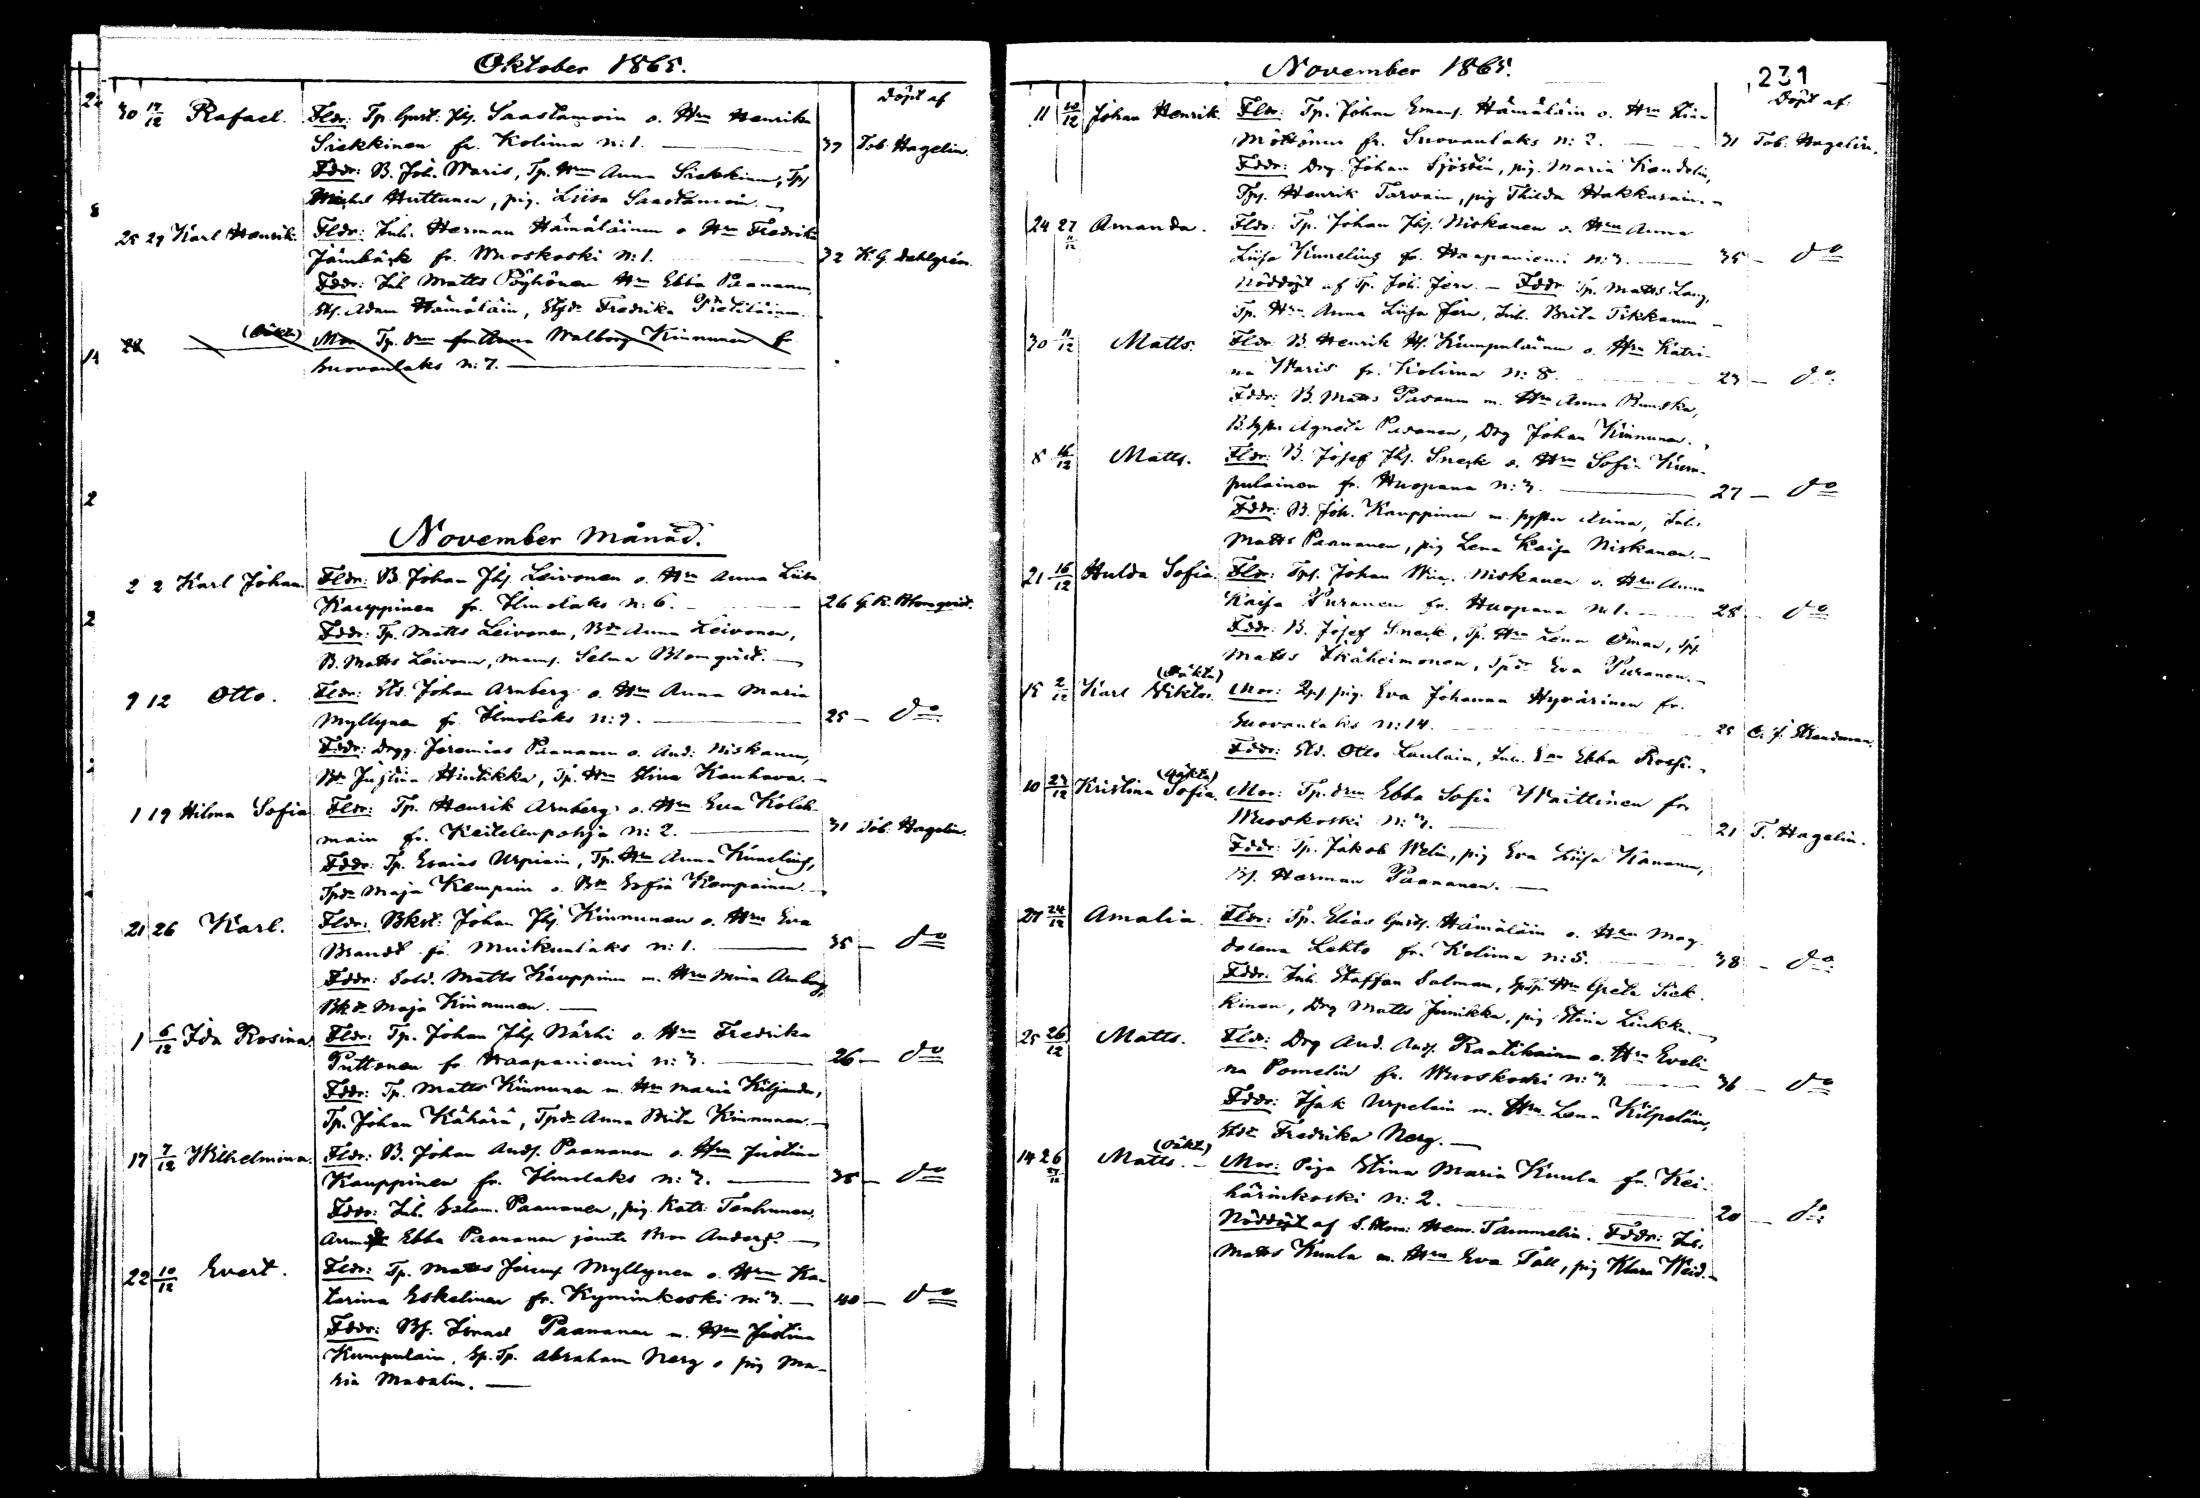 Oktober 1865.
Döpt af
30 17/12 Rafael. Fldr: Tp. Gust. Jhs. Saastamoin o. Hru Henrika
Siekkinen fr. Kolima n:1. 37 Tob. Hagelin.
Fddr: B. Joh. Waris, Tp. Hru Anna Siekkinen, Tps
Michel Huttunen, pig. Liisa Saastamoin.
25 29 Karl Henrik. Fldr: Inh. Herman Hämäläinen o Hru Fredrika
Jämbäck fr. Wuoskoski n:1. 32 K. G. Dahlgrén.
Fddr: Inh Matts Pöyhönen Hru Ebba Paananen,
Adam Hämäläin, Fredrika
28 (Oäkta) Mor: Tp. Anna Walborg Kinnunen f.
Suovanlaks n:7.
November Månad.
2 2 Karl Johan. Fldr: B. Johan Jhs. Leivonen o. Hru Anna Liisa
Kauppinen fr. Ilmolaks n:6. 26 G. R. Blomqvist.
Fddr: Tp. Matts Leivonen, Bdr Anna Leivonen,
B. Matts Leivonen, mams. Selma Blomqvist.
9 12 Otto. Fldr: Std. Johan Arnberg o. Hru Anna Maria
Myllynen fr. Ilmolaks n:9. 25 — do
Fddr: Drgg: Jeremias Paananen o. And: Niskanen,
Bdr Justina Hintikka, Tp. Hru Stina Kauhava.
1 19 Hilma Sofia Fldr: Tp. Henrik Arnberg o. Hru Eva Koleh-
main fr. Keitelenpohja n:2. 31 Tob. Hagelin.
Fddr: Tp. Esaias Urpiain, Tp. Hru Anna Kuneling,
Tpdr Maja Kempain o. Bdr Sofia Kempainen.
21 26 Karl. Fldr: Bkst: Johan Jhs Kinnunen o. Hru Eva
Brandt fr. Muikunlaks n:1. 35 — do
Fddr: Sold. Matts Kauppinen m. Hru Mina Arnberg,
Maja Kinnunen.
1 6/12 Ida Rosina. Fldr: Tp. Johan Jhs Närhi o. Hru Fredrika
Puttonen fr. Haapaniemi n:3. 26 — do
Fddr: Tp. Matts Kinnunen m. Hru Maria Kiljander,
Tp. Johan Kähärä, Tpdr Anna Brita Kinnunen.
17 7/12 Wilhelmina. Fldr: B. Johan Ands. Paananen o. Hru Justina
Kauppinen fr. Ilmolaks n:2. 35 — do
Fddr: Inh. Salom. Paananen, pig. Katr. Tenhunen,
Ebba Paananen jemte Mor Anders.
22 10/12 Evert. Fldr: Tp. Matts Jerems Myllynen o. Hru Ka-
tarina Eskelinen fr. Kyminkoski n:3. 40 — do
Fddr: Bs. Israel Paananen m. Hru Justina
Kumpulain, Sp. Tp. Abraham Nerg o pig Ma-
ria Masalin.
November 1865. 231
Döpt af.
11 10/12 Johan Henrik. Fldr: Tp. Johan Emans. Hämäläin o. Hru Stina
Möttönen fr. Suovanlaks n:2. 31 Tob. Hagelin.
Fddr: Drg. Johan Sjöstén, pig. Maria Kandelin,
Tps. Henrik Tarvain, pig Thilda Hakkarain.
24 27/12 Amanda. Fldr: Tp. Johan Jhs. Niskanen o. Hru Anna
Liisa Kuneling fr. Haapaniemi n:3. 35 — do
Nöddöpt af Tp. Joh. Jern. — Fddr: Tp. Matts Lang,
Tp. Hru Anna Liisa Jern, Inh. Brita Tikkanen
30 11/12 Matts. Fldr: B. Henrik Hs. Kumpulainen o. Hru Katri-
na Waris fr. Kolima n:8. 23 — do
Fddr: B. Matts Pasanen m. Hru Anna Ruuska,
Agneta Pasanen, Drg Johan Kinnunen.
8 16/12 Matts. Fldr: B. Josef Jhs. Sneck o. Hru Sofia Kum-
pulainen fr. Huopana n:3. 27 — do
Fddr: B. Joh. Kauppinen m. syster Anna, Inh.
Matts Paananen, pig Lena Kaisa Niskanen.
21 16/12 Hulda Sofia. Fldr: Tps. Johan Niskanen o. Hru Anna
Kaisa Puranen fr. Huopana n:1. 28 — do
Fddr: B. Josef Sneck, Tp. Hru Lena Öman, Tps
Matts Ikäheimonen, Tpdr Eva Puranen.
15 2/12 Karl Viktor. (Oäkta) Mor: Tps pig. Eva Johanna Hyvärinen fr.
Suovanlaks n:14. 25 C. J. Strandman.
Fddr: Std. Otto Laulain, Inh. Ebba Rossi.
10 23/12 Kristina Sofia. (Oäkta) Mor: Tp. dru Ebba Sofia Waittinen fr
Wuoskoski n:3. 21 T. Hagelin.
Fddr: Tp. Jakob Welin, pig Eva Liisa Kananen,
Bs. Herman Paananen.
27 24/12 Amalia. Fldr: Tp. Elias Gusts. Hämäläin o. Hru Mag-
dalena Lehto fr. Kolima n:5. 38 — do
Fddr. Inh. Staffan Salman, Hru Greta Siek-
kinen, Drg Matts Junikka, pig Stina Liukka.
25 26/12 Matts. Fldr: Drg And. Ands. Raatikainen o. Hru Eveli-
na Pomelin fr. Wuoskoski n:3. 36 — do
Fddr: Isak Urpelain m. Hru Lena Kilpeläin,
Fredrika Nerg.
14 26 Matts. (Oäkta) Mor: Piga Stina Maria Kuula fr. Kei-
härinkoski n:2. 20 — do
Nöddöpt af S. Blom: Hem. Tammelin. Fddr: Inh.
Matts Kuula m. Hru Eva Tall, pig Klara Weid.